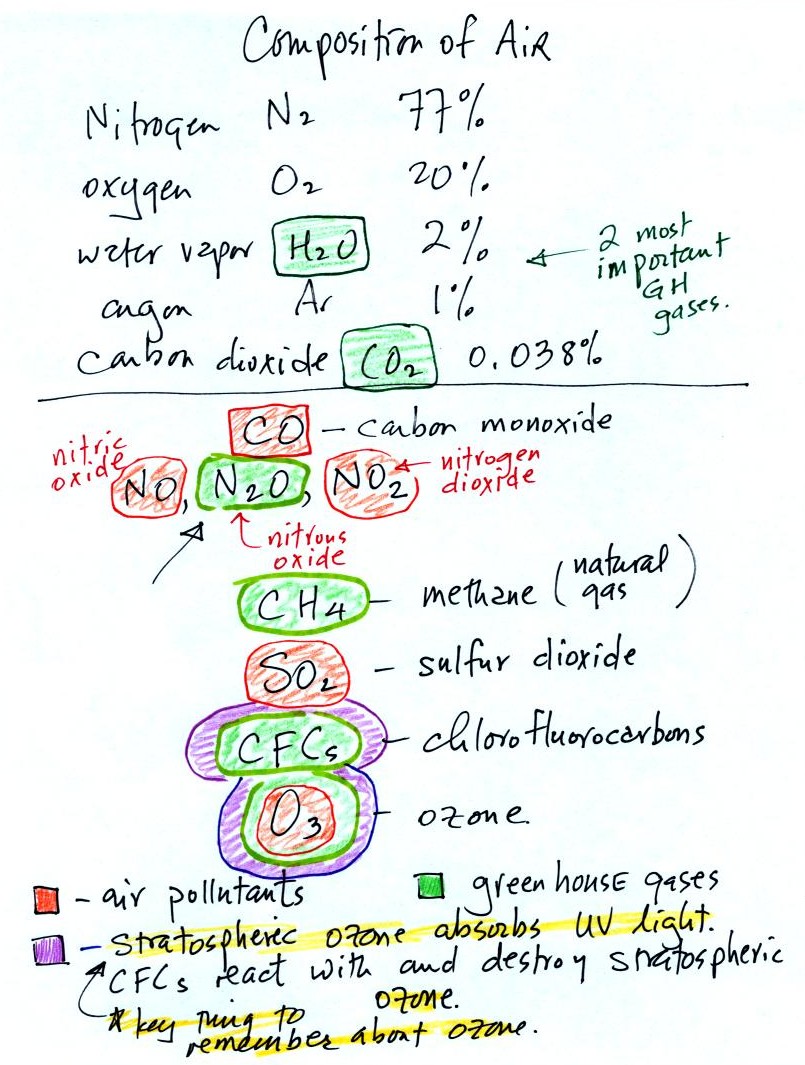 Composition of Air
Nitrogen N2 77%
oxygen O2 20%
water vapor H2O 2%
2 most
important
GH
gases.
argon Ar 1%
carbon dioxide CO2 0.038%
CO – carbon monoxide
nitric
oxide
NO, N2O, NO2
nitrogen
dioxide
nitrous
oxide
CH4 – methane (natural gas)
SO2 – sulfur dioxide
CFCs – chlorofluorocarbons
O3 – ozone.
– air pollutants
greenhouse gases
– stratospheric ozone absorbs UV light.
CFCs react with and destroy stratospheric
ozone.
* key thing to
remember about ozone.